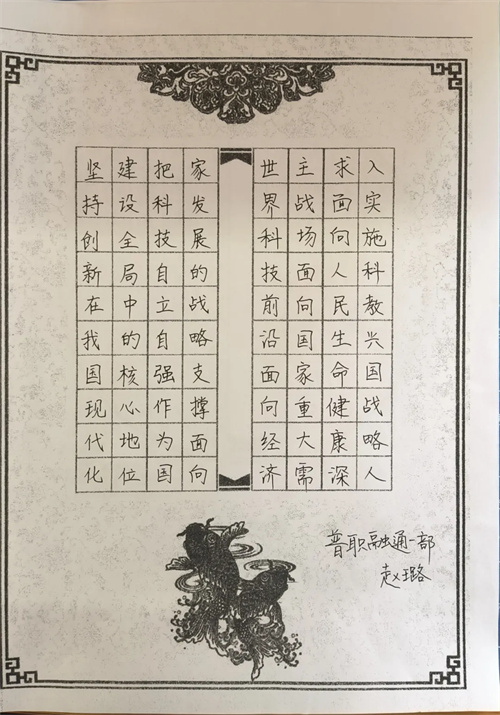 坚持创新在我国现代化
建设全局中的核心地位
把科技自立自强作为国
家发展的战略支撑面向
世界科技前沿面向经济
主战场面向国家重大需
求面向人民生命健康深
入实施科教兴国战略人
普职融通一部
赵璐